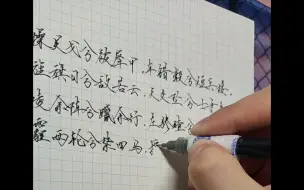 操吴戈兮被犀甲，车错毂兮短兵接。
旌蔽日兮敌若云，矢交坠兮士
凌余阵兮躐余行，左骖殪兮
霾两轮兮絷四马，